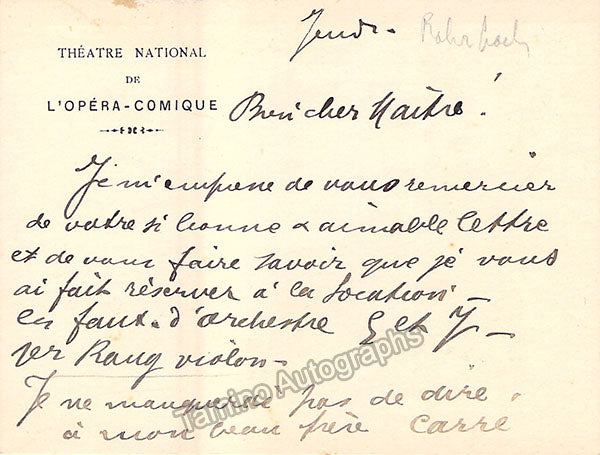 Jeudi
THÉATRE NATIONAL
DE
L'OPÉRA-COMIQUE
Bien cher Maître!
Je m'empresse de vous remercier
de votre si bonne & aimable lettre
et de vous faire savoir que je vous
ai fait réserver à la location
les faut. d'orchestre 5 et 7
1er Rang violon
Je ne manquerai pas de dire
à mon beau frère Carré
Tamino Autographs